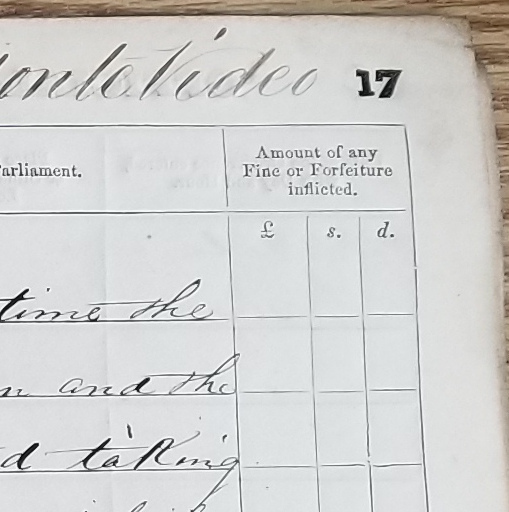 onte Video 17
arliament.
Amount of any
Fine or Forfeiture
inflicted.
£ s. d.
time the
n and the
d taking